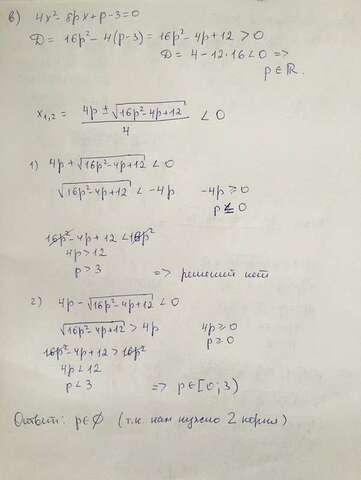 в) 4x² - 8px + p - 3 = 0
D = 16p² - 4(p-3) = 16p² - 4p + 12 > 0
D = 4 - 12·16 < 0 =>
p ∈ ℝ.
x₁,₂ = (4p ± √(16p² - 4p + 12))/4 < 0
1) 4p + √(16p² - 4p + 12) < 0
√(16p² - 4p + 12) < -4p    -4p ≥ 0
p ≤ 0
16p² - 4p + 12 < 16p²
4p > 12
p > 3    => решений нет
2) 4p - √(16p² - 4p + 12) < 0
√(16p² - 4p + 12) > 4p    4p ≥ 0
p ≥ 0
16p² - 4p + 12 > 16p²
4p < 12
p < 3    => p ∈ [0; 3)
Ответ: p ∈ ∅ (т.к нам нужно 2 корня)